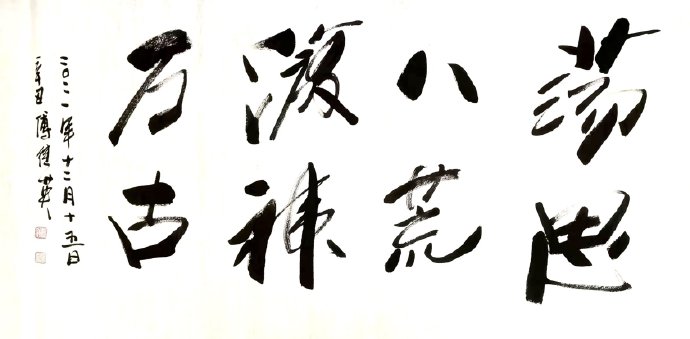 荡思
八荒
游神
万古
二〇二一年十二月十五日
辛丑 傅 英